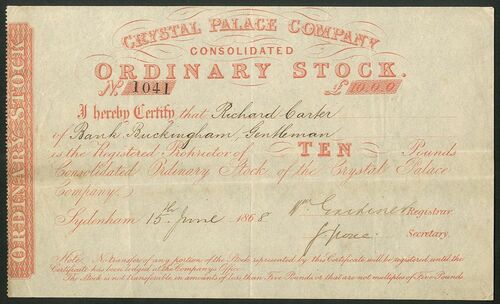 CRYSTAL PALACE COMPANY
CONSOLIDATED
ORDINARY STOCK.
No. 1041 £10.0.0
I hereby Certify that Richard Carter
of Bank, Buckingham, Gentleman
is the Registered Proprietor of TEN Pounds
Consolidated Ordinary Stock of the Crystal Palace
Company.
Sydenham 15th June 1868 Wm. Gardiner Registrar.
Secretary.
Note. No transfer of any portion of the Stock represented by this Certificate will be registered until the
Certificate has been lodged at the Company's Office.
The Stock is not transferable in amounts of less than Five Pounds or that are not multiples of Five Pounds.
ORDINARY STOCK